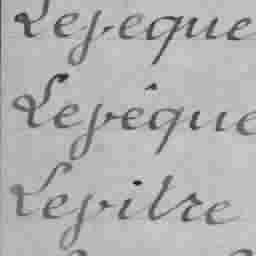 Lepeque
Lepêque
Lepitre